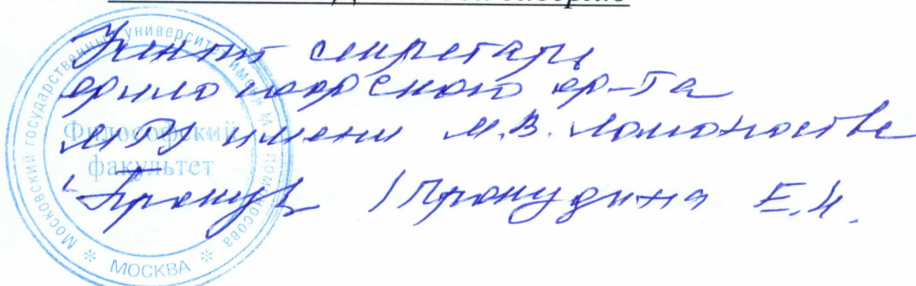 Ученый секретарь
философского ф-та
МГУ имени М.В. Ломоносова
/Прокудина Е.И.
Московский государственный университет имени М.В. Ломоносова
Философский
факультет
* МОСКВА *